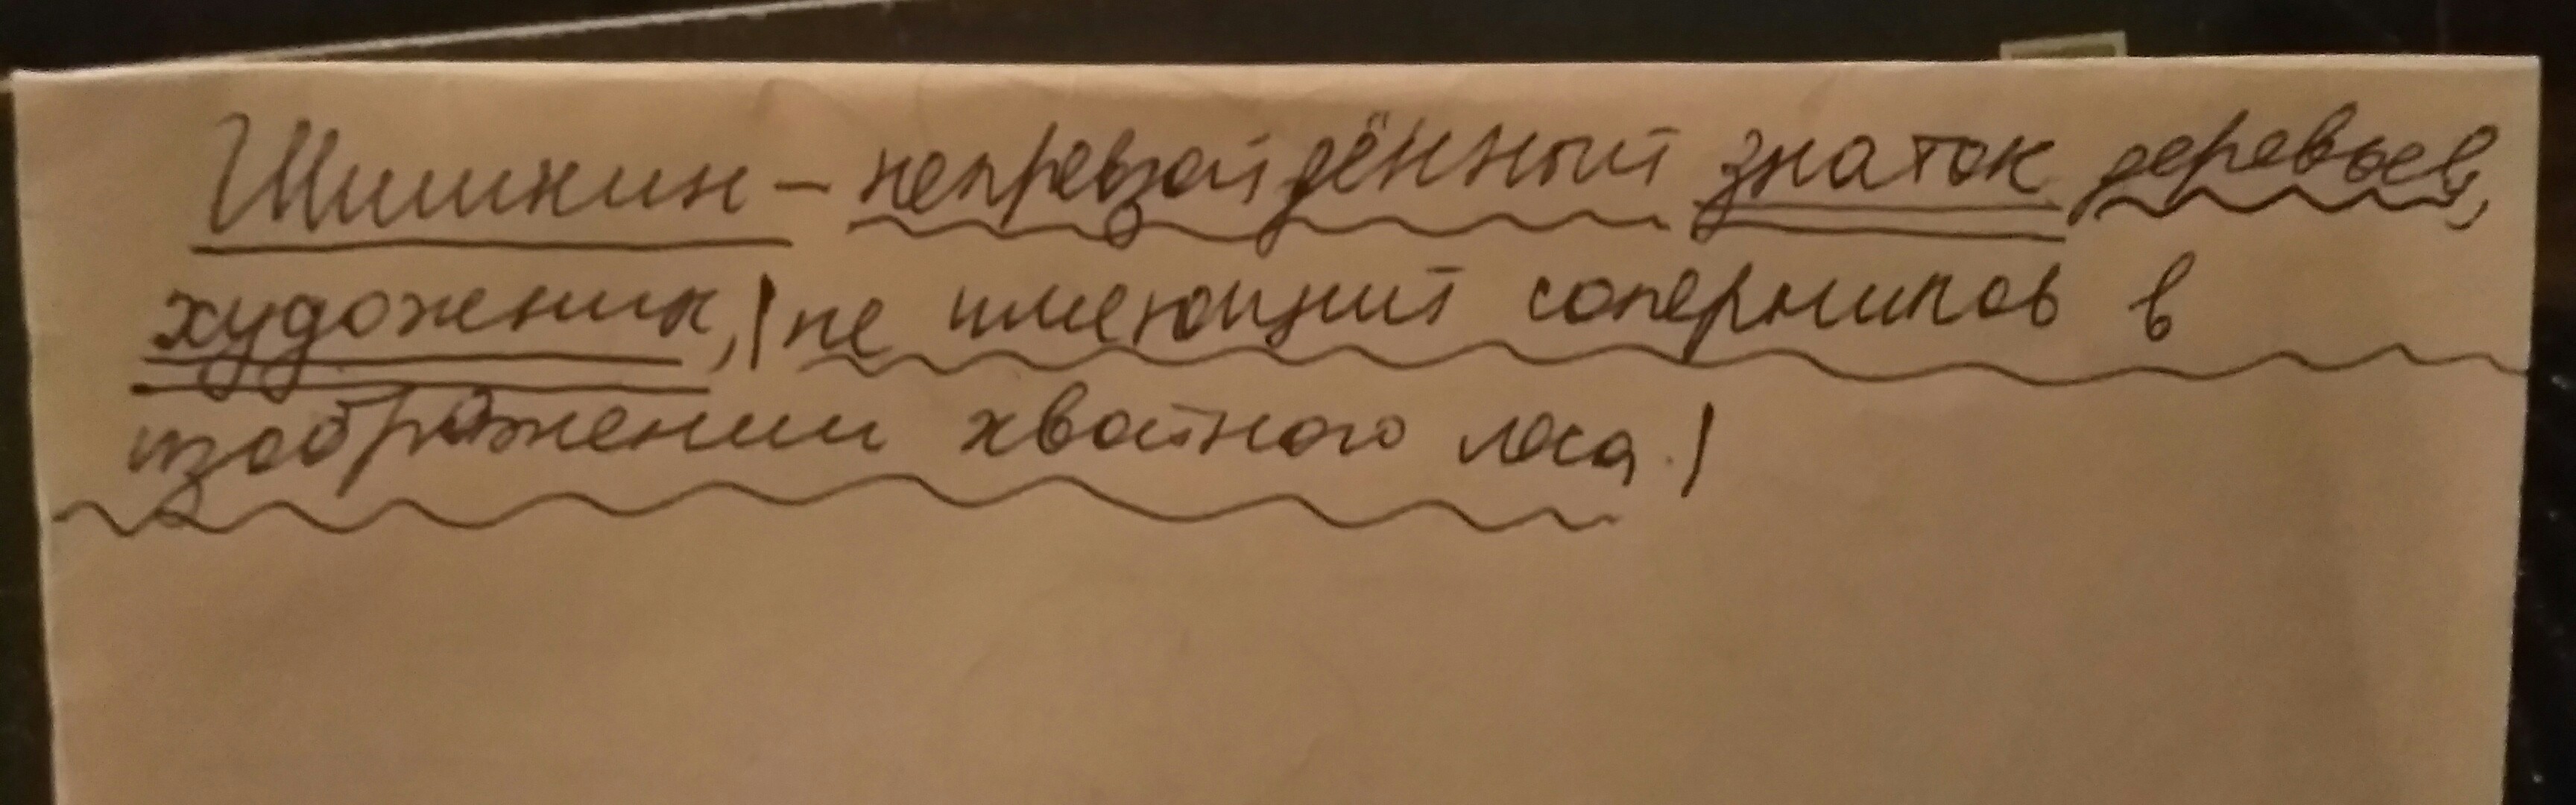 Шишкин – непревзойдённый знаток деревьев,
художник,|не имеющий соперников в
изображении хвойного леса.|